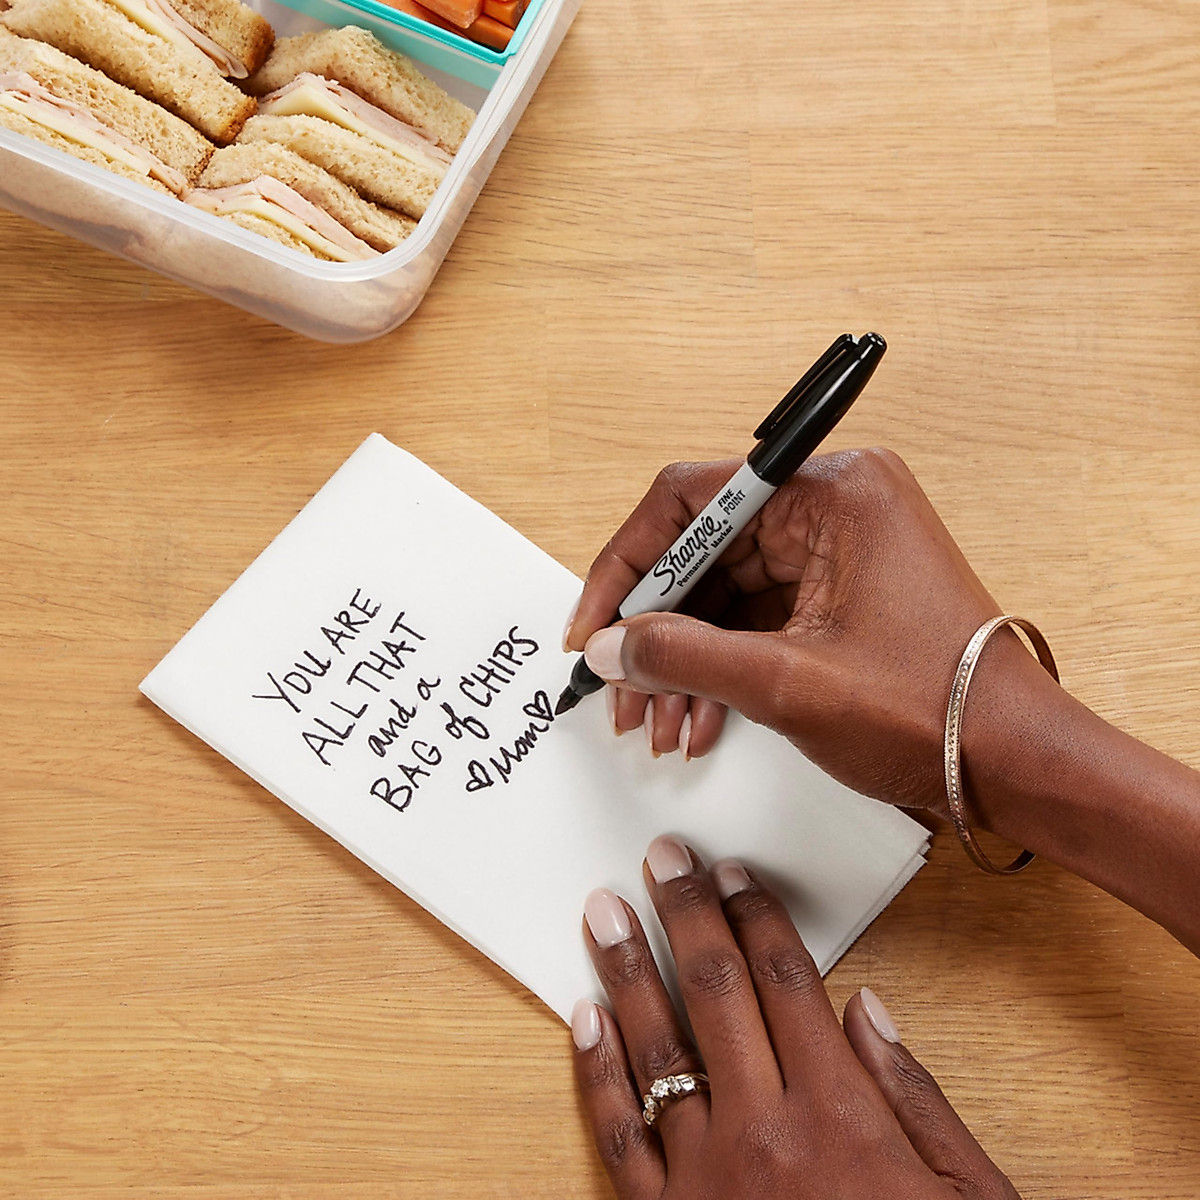 YOU ARE
ALL THAT
and a
BAG of CHIPS
♡Mom♡
Sharpie®
FINE
POINT
Permanent Marker